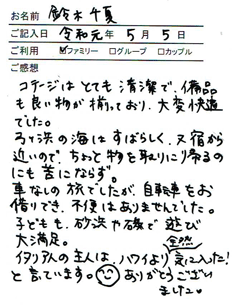 お名前 鈴木千夏
ご記入日 令和元年 5月 5日
ご利用 ☑ファミリー □グループ □カップル
ご感想
コテージはとても清潔で、備品
も良い物が揃っており、大変快適
でした。
弓ヶ浜の海はすばらしく、又宿から
近いので、ちょっと物を取りに帰るの
にも苦にならず。
車なしの旅でしたが、自転車をお
借りでき、不便はありませんでした。
子どもも、砂浜や磯で遊び
大満足。
イタリア人の主人は、ハワイより全然気に入った!
と言ています。ありがとうござい
ました。